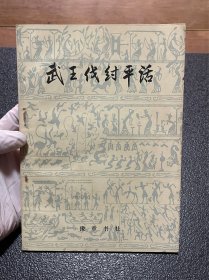 武王伐纣平话
豫章书社